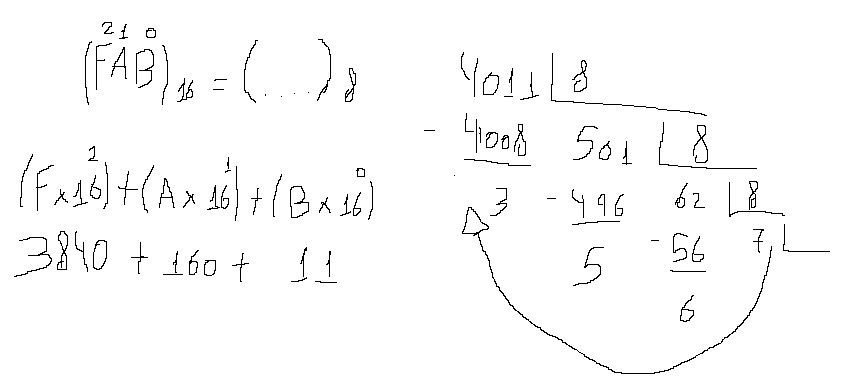 2 1 0
(FAB)₁₆ = (....)₈
(F×16²)+(A×16¹)+(B×16⁰)
3840 + 160 + 11
4011 | 8
- 4008 501 | 8
3 - 496 62 | 8
5 - 56 7
6